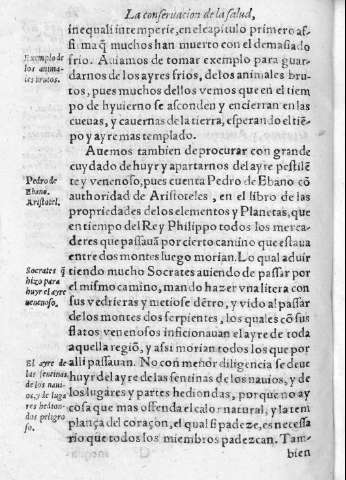 La conseruacion de la salud,
inequali intemperie, en el capitulo primero as-
si. ma q̃ muchos han muerto con el demasiado
Exemplo de
los anima-
les brutos.
frio. Auiamos de tomar exemplo para guar-
darnos de los ayres frios, de los animales bru-
tos, pues muchos dellos vemos que en el tiem
po de hyuierno se asconden y encierran en las
cueuas, y cauernas de la tierra, esperando el tiẽ-
po y ayre mas templado.
Auemos tambien de procurar con grande
cuydado de huyr y apartarnos del ayre pestilẽ
Pedro de
Ebano.
Aristotel.
te y venenoso, pues cuenta Pedro de Ebano cõ
authoridad de Aristoteles, en el libro de las
propriedades de los elementos y Planetas, que
en tiempo del Rey Philippo todos los merca-
deres que passauã por cierto camino que estaua
entre dos montes luego morian. Lo qual aduir
Socrates q̃
hizo para
huyr el ayre
uenenoso,
tiendo mucho Socrates auiendo de passar por
el mismo camino, mando hazer vna litera con
sus vedrieras y metiose dẽtro, y vido al passar
de los montes dos serpientes, los quales cõ sus
flatos venenosos inficionauan el ayre de toda
aquella regiõ, y assi morian todos los que por
El ayre de
las sentinas
de los naui-
os, y de luga
res hedion-
dos peligro
so.
alli passauan. No con meñor diligencia se deue
huyr del ayre de las sentinas de los nauios, y de
los lugares y partes hediondas, porque no ay
cosa que mas offenda el calor natural, y la tem
plança del coraçon, el qual si padeze, es necessa
rio que todos los miembros padezcan. Tam-
bien